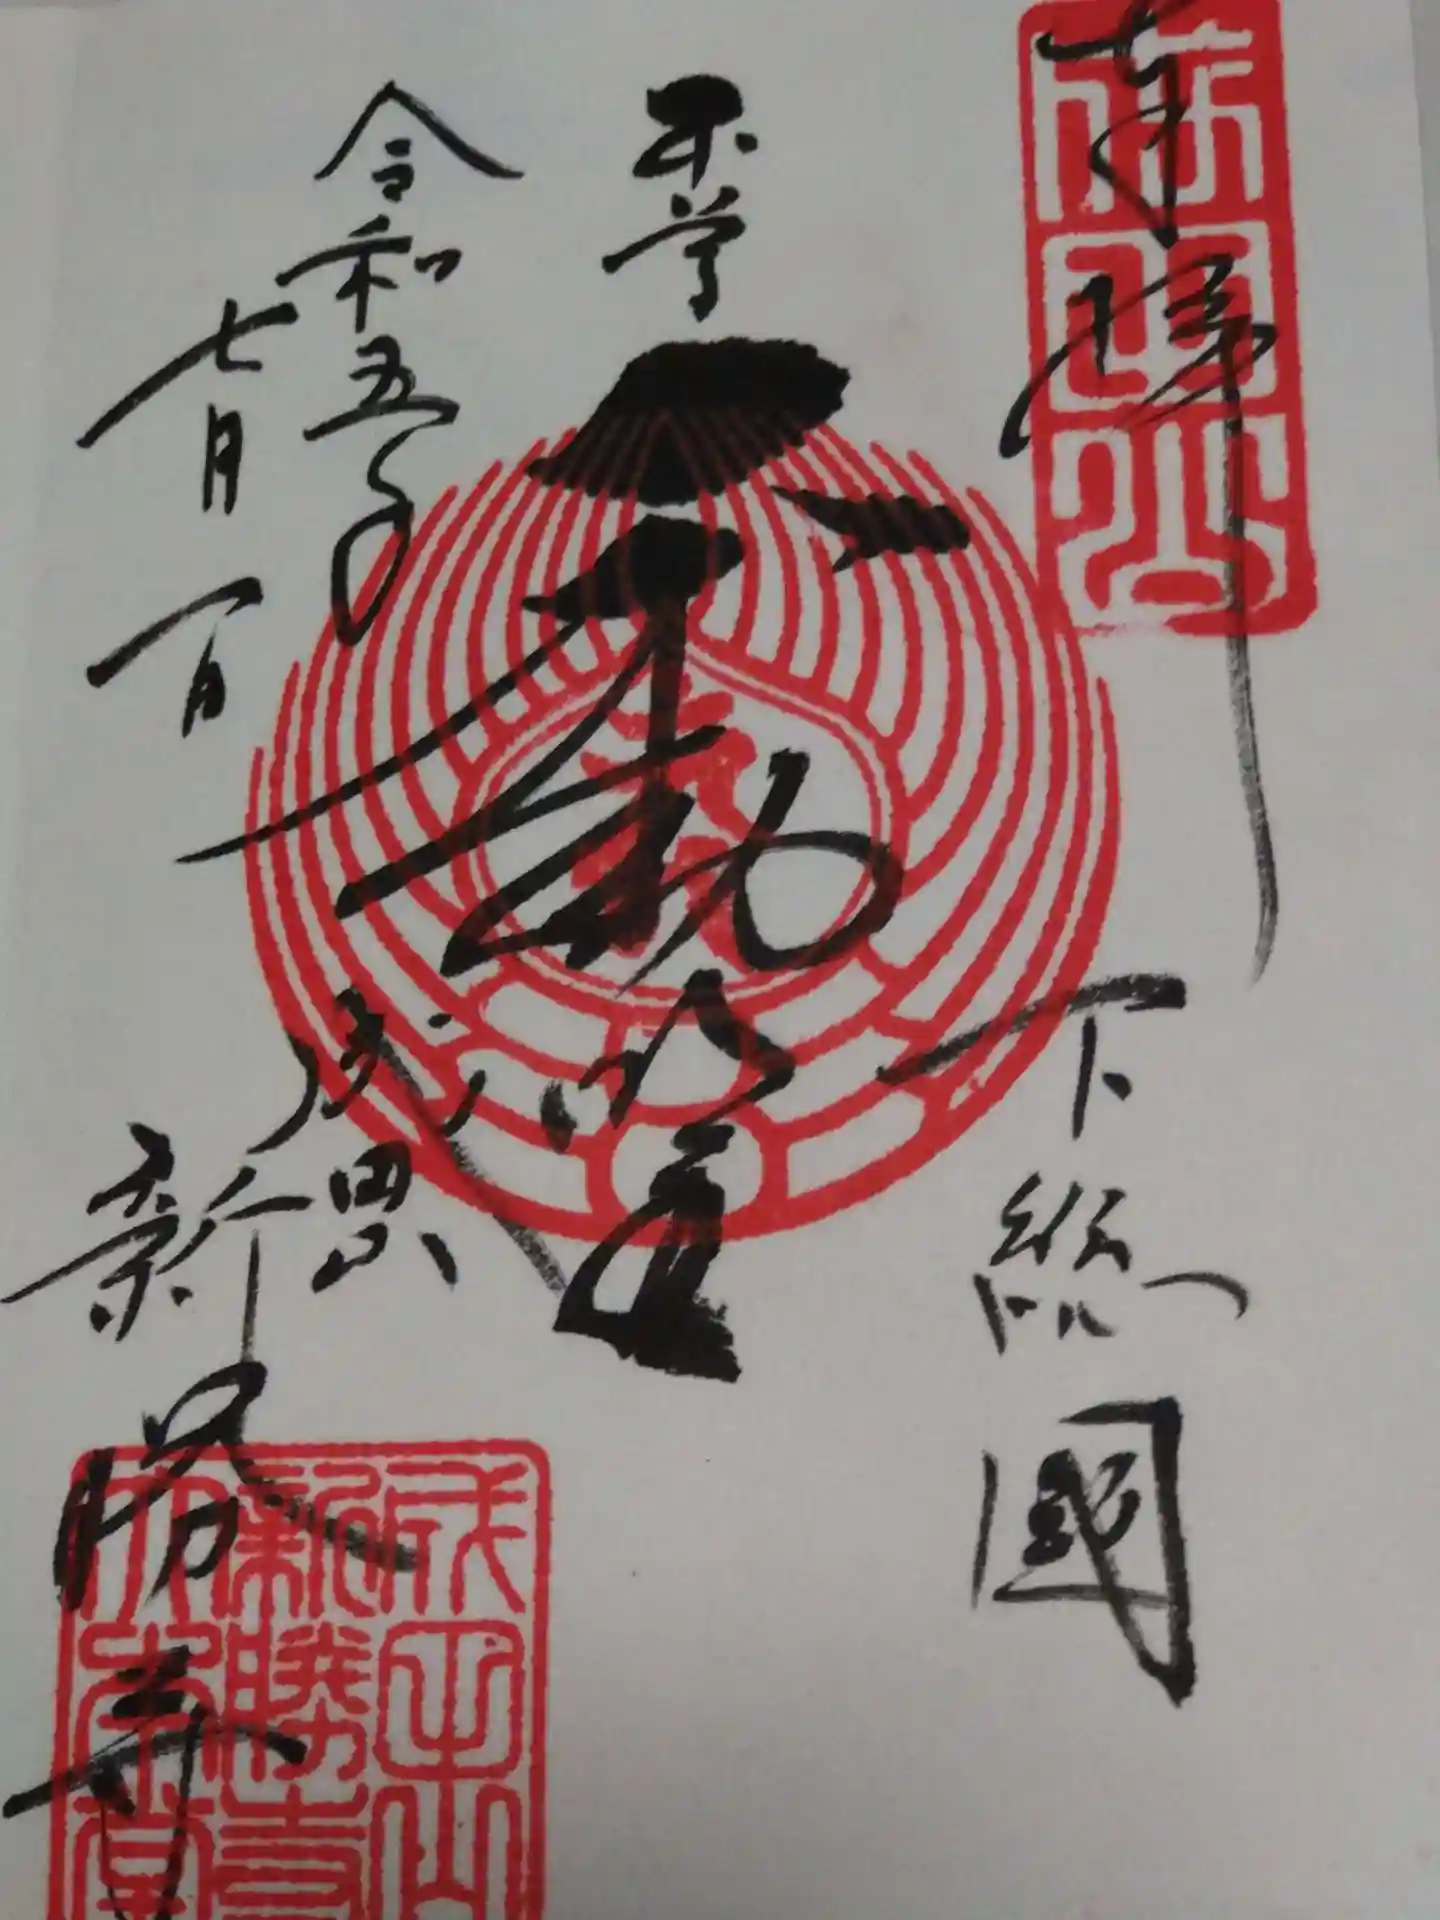 奉拝
下総國
本尊
不動明王
令和五年
七月一日
成田山
新勝寺
成田山
新勝寺
大本堂